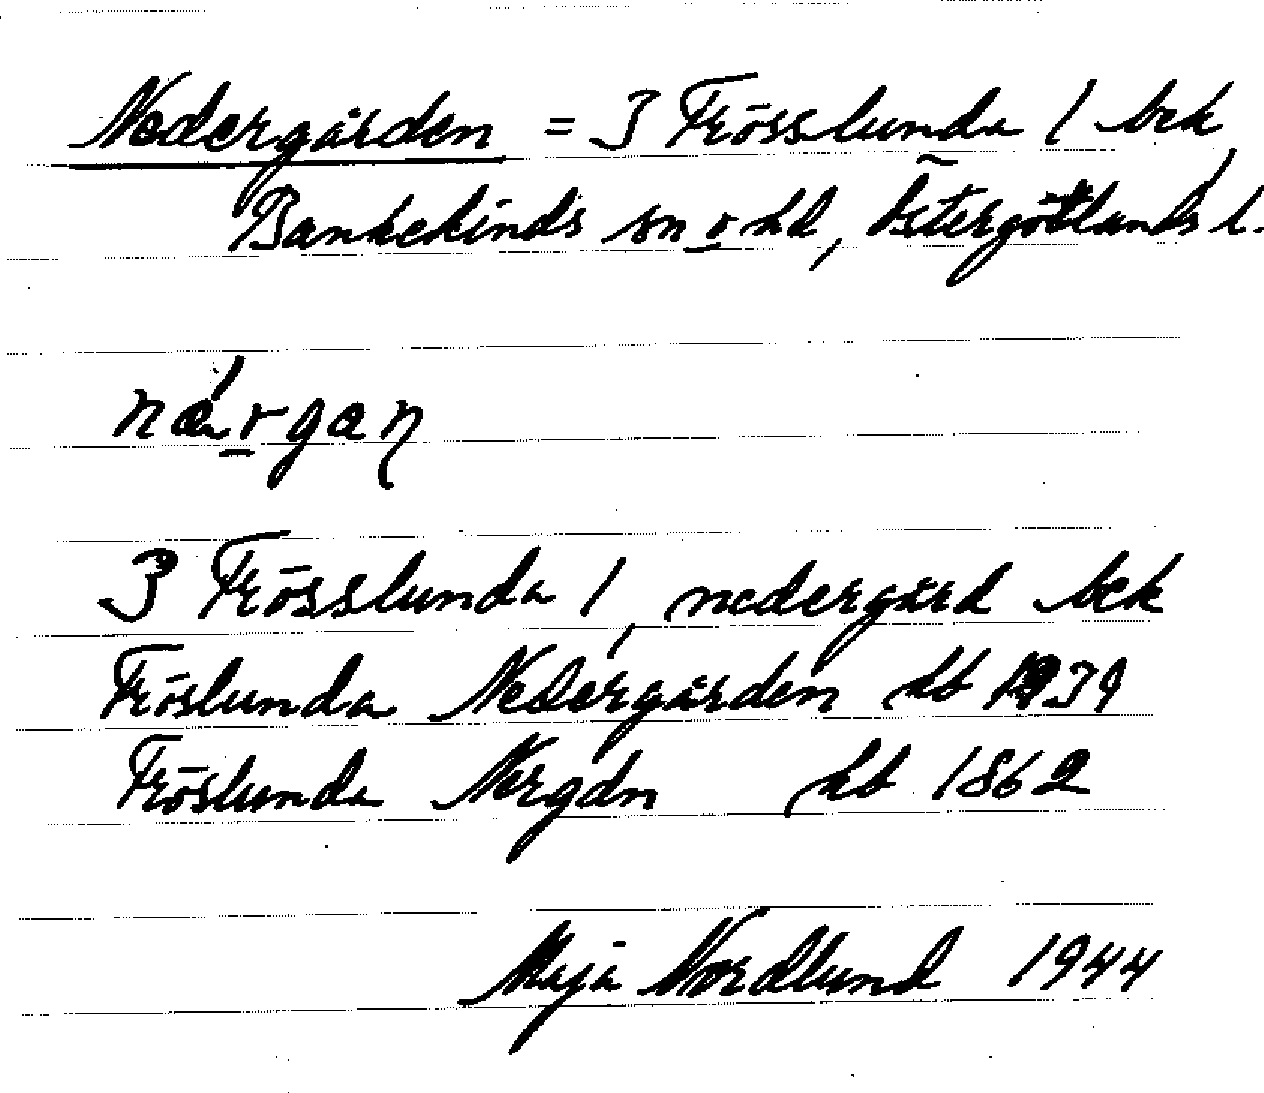 Nedergården = 3 Frösslunda 1 bek
Bankekinds sn o hd, Östergötlands l.
næ̍rgaɳ
3 Frösslunda 1, nedergård bek
Fröslunda Nedergården hb 1939
Fröslunda Nergdn hb 1862
Maja Nordlund 1944